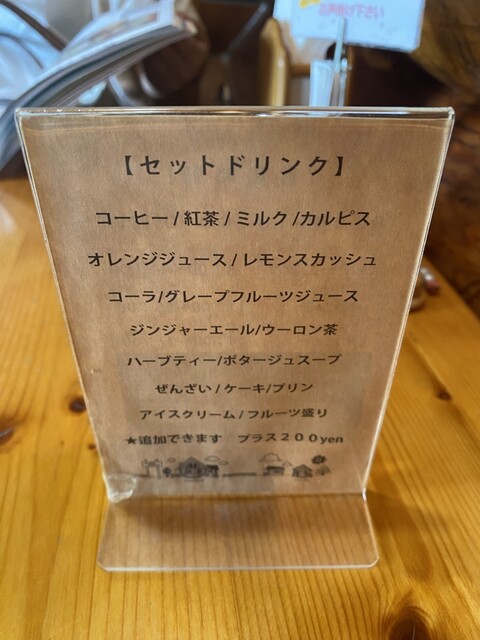 お声掛け下さい
【セットドリンク】
コーヒー/紅茶/ミルク/カルピス
オレンジジュース/レモンスカッシュ
コーラ/グレープフルーツジュース
ジンジャーエール/ウーロン茶
ハーブティー/ポタージュスープ
ぜんざい/ケーキ/プリン
アイスクリーム/フルーツ盛り
★追加できます　プラス２００yen